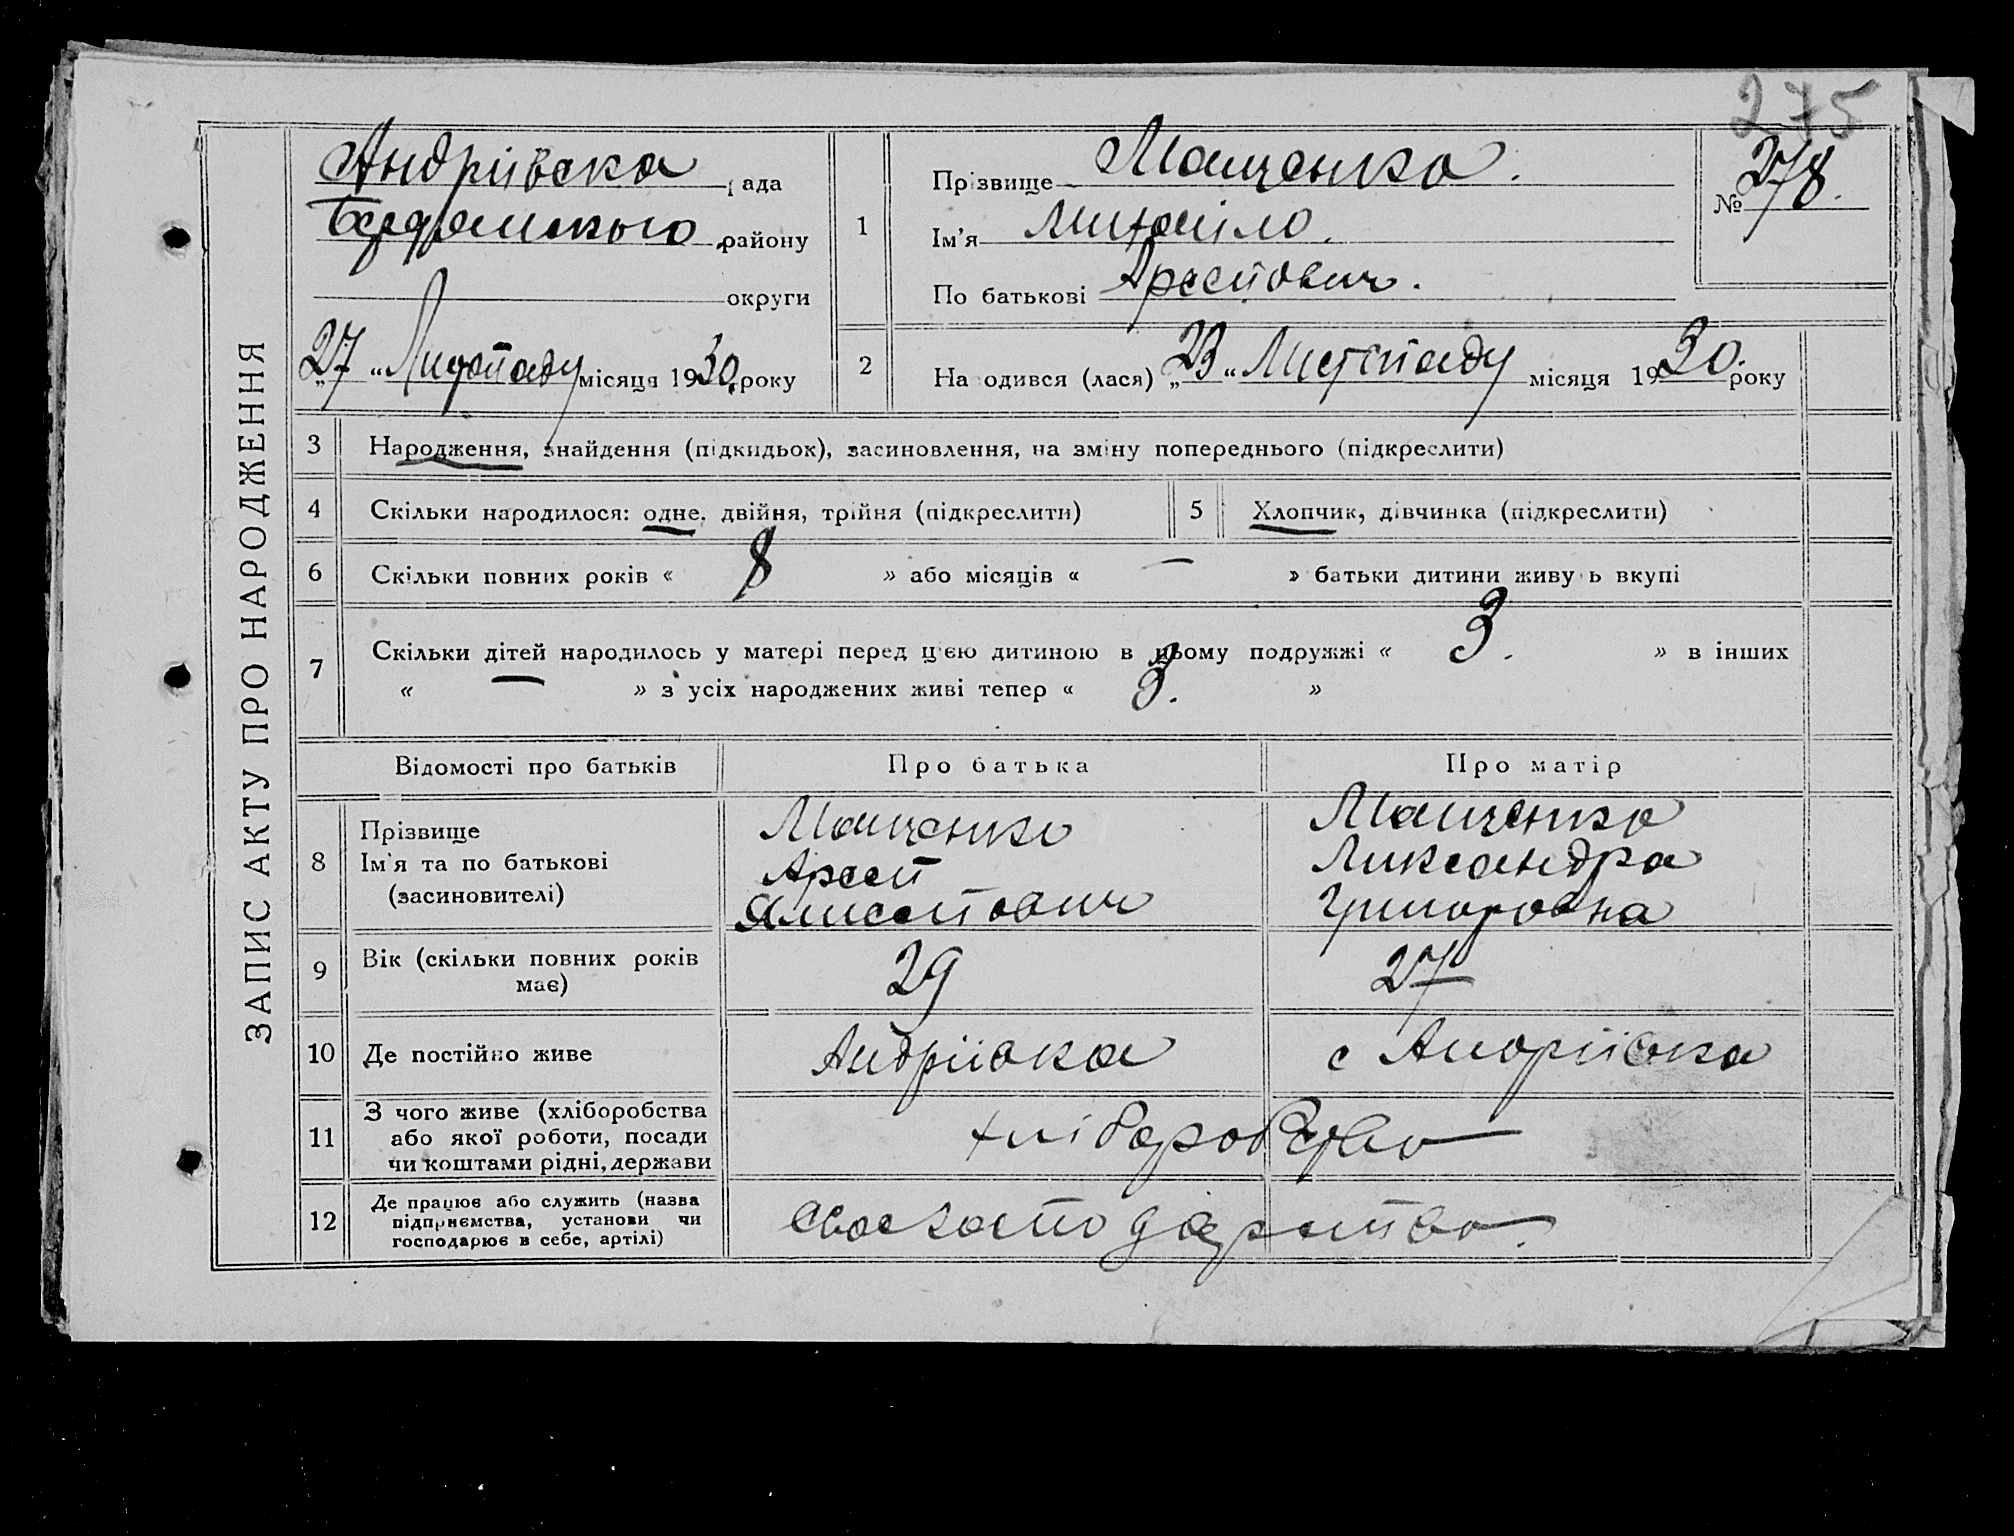 275
ЗАПИС АКТУ ПРО НАРОДЖЕННЯ
Андріївска рада
району
округи
"27" Листопаду місяця 1930 року
1
Прізвище Мащенко.
Ім'я Михайло.
По батькові Арестович.
№ 278.
2
Народився (лася) "23" Листопаду місяця 1930. року
3 Народження, знайдення (підкидьок), засиновлення, на зміну попереднього (підкреслити)
4 Скільки народилося: одне, двійня, трійня (підкреслити)
5 Хлопчик, дівчинка (підкреслити)
6 Скільки повних років « 8 » або місяців « — » батьки дитини живуть вкупі
7 Скільки дітей народилось у матері перед цією дитиною в цьому подружжі « 3. » в інших
« — » з усіх народжених живі тепер « 3. »
Відомості про батьків
Про батька
Про матір
8
Прізвище
Ім'я та по батькові
(засиновителі)
Мащенко
Арест
Мащенко
Лександра
Григоровна
9
Вік (скільки повних років
має)
29
27
10 Де постійно живе
Андріївка
с Андріївка
11
З чого живе (хліборобства
або якої роботи, посади
чи коштами рідні, держави
хліборобство
12
Де працює або служить (назва
підприємства, установи чи
господарює в себе, артілі)
свое господарство.